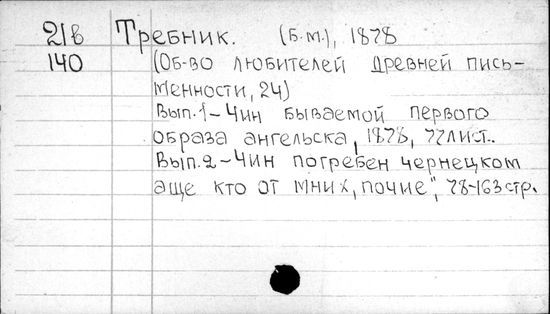 21в Требник. (Б.м.), 1878
140 (Об-во любителей древней пись-
менности, 24)
Вып.1-Чин бываемой первого
образа ангельска, 1878, 77лист.
Вып.2-Чин погребен чернецком
аще кто от мних, почие", 78-163стр.